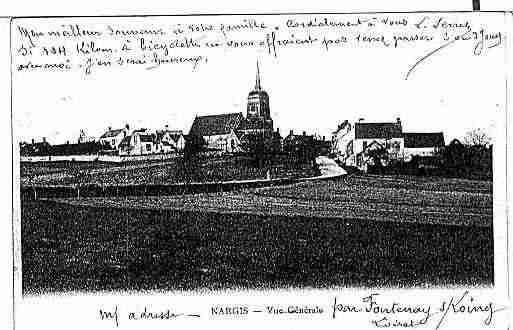 Mon meilleur souvenir à votre famille. Cordialement à vous L. Serrez
Si 104 Kilom. à bicyclette ne vous effraient pas venez passer 2 ou 3 jours
avec moi. J'en serai heureux.
NARGIS — Vue Générale
m/ adresse — par Fontenay s/Loing
Loiret